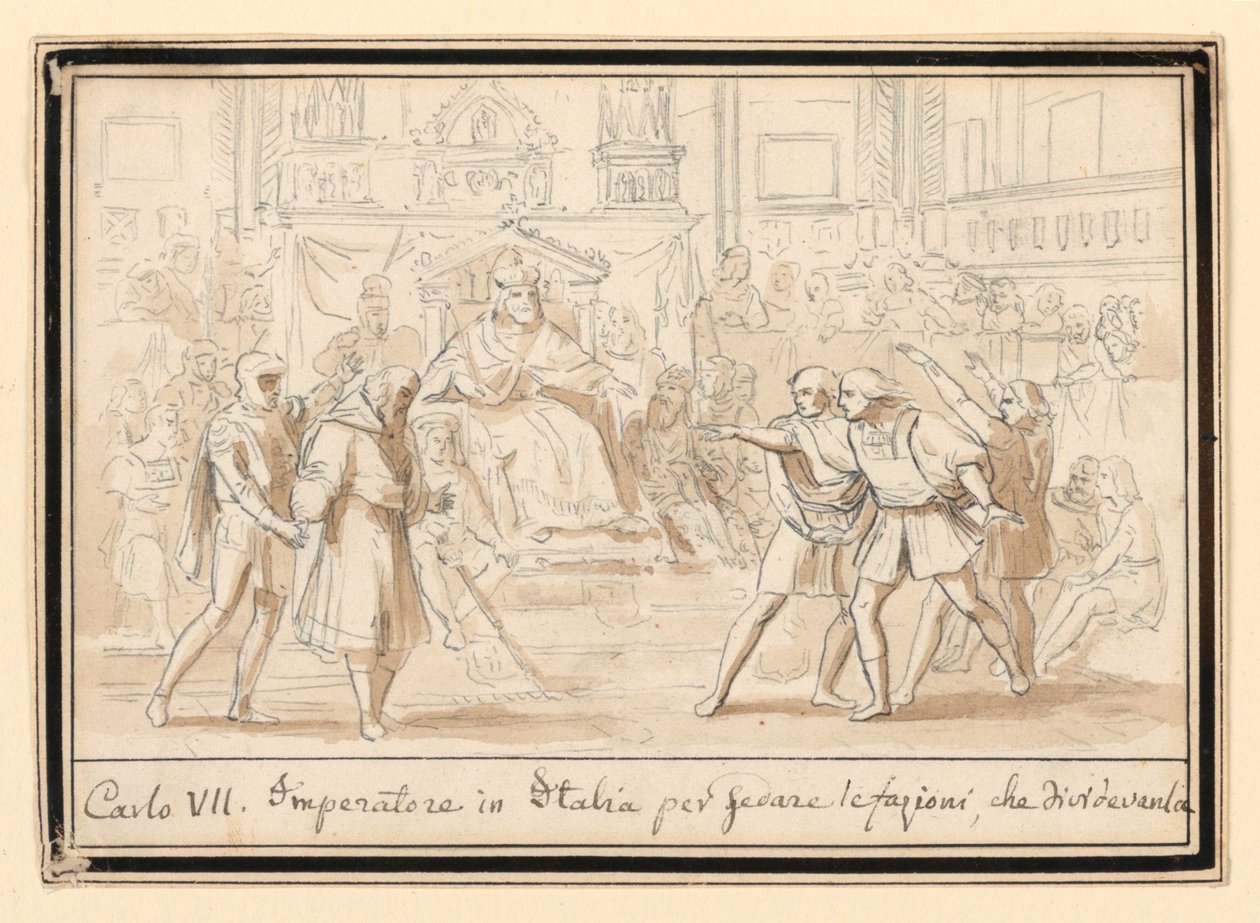 Carlo VII. Imperatore in Italia per sedare le fazioni, che dividevanla